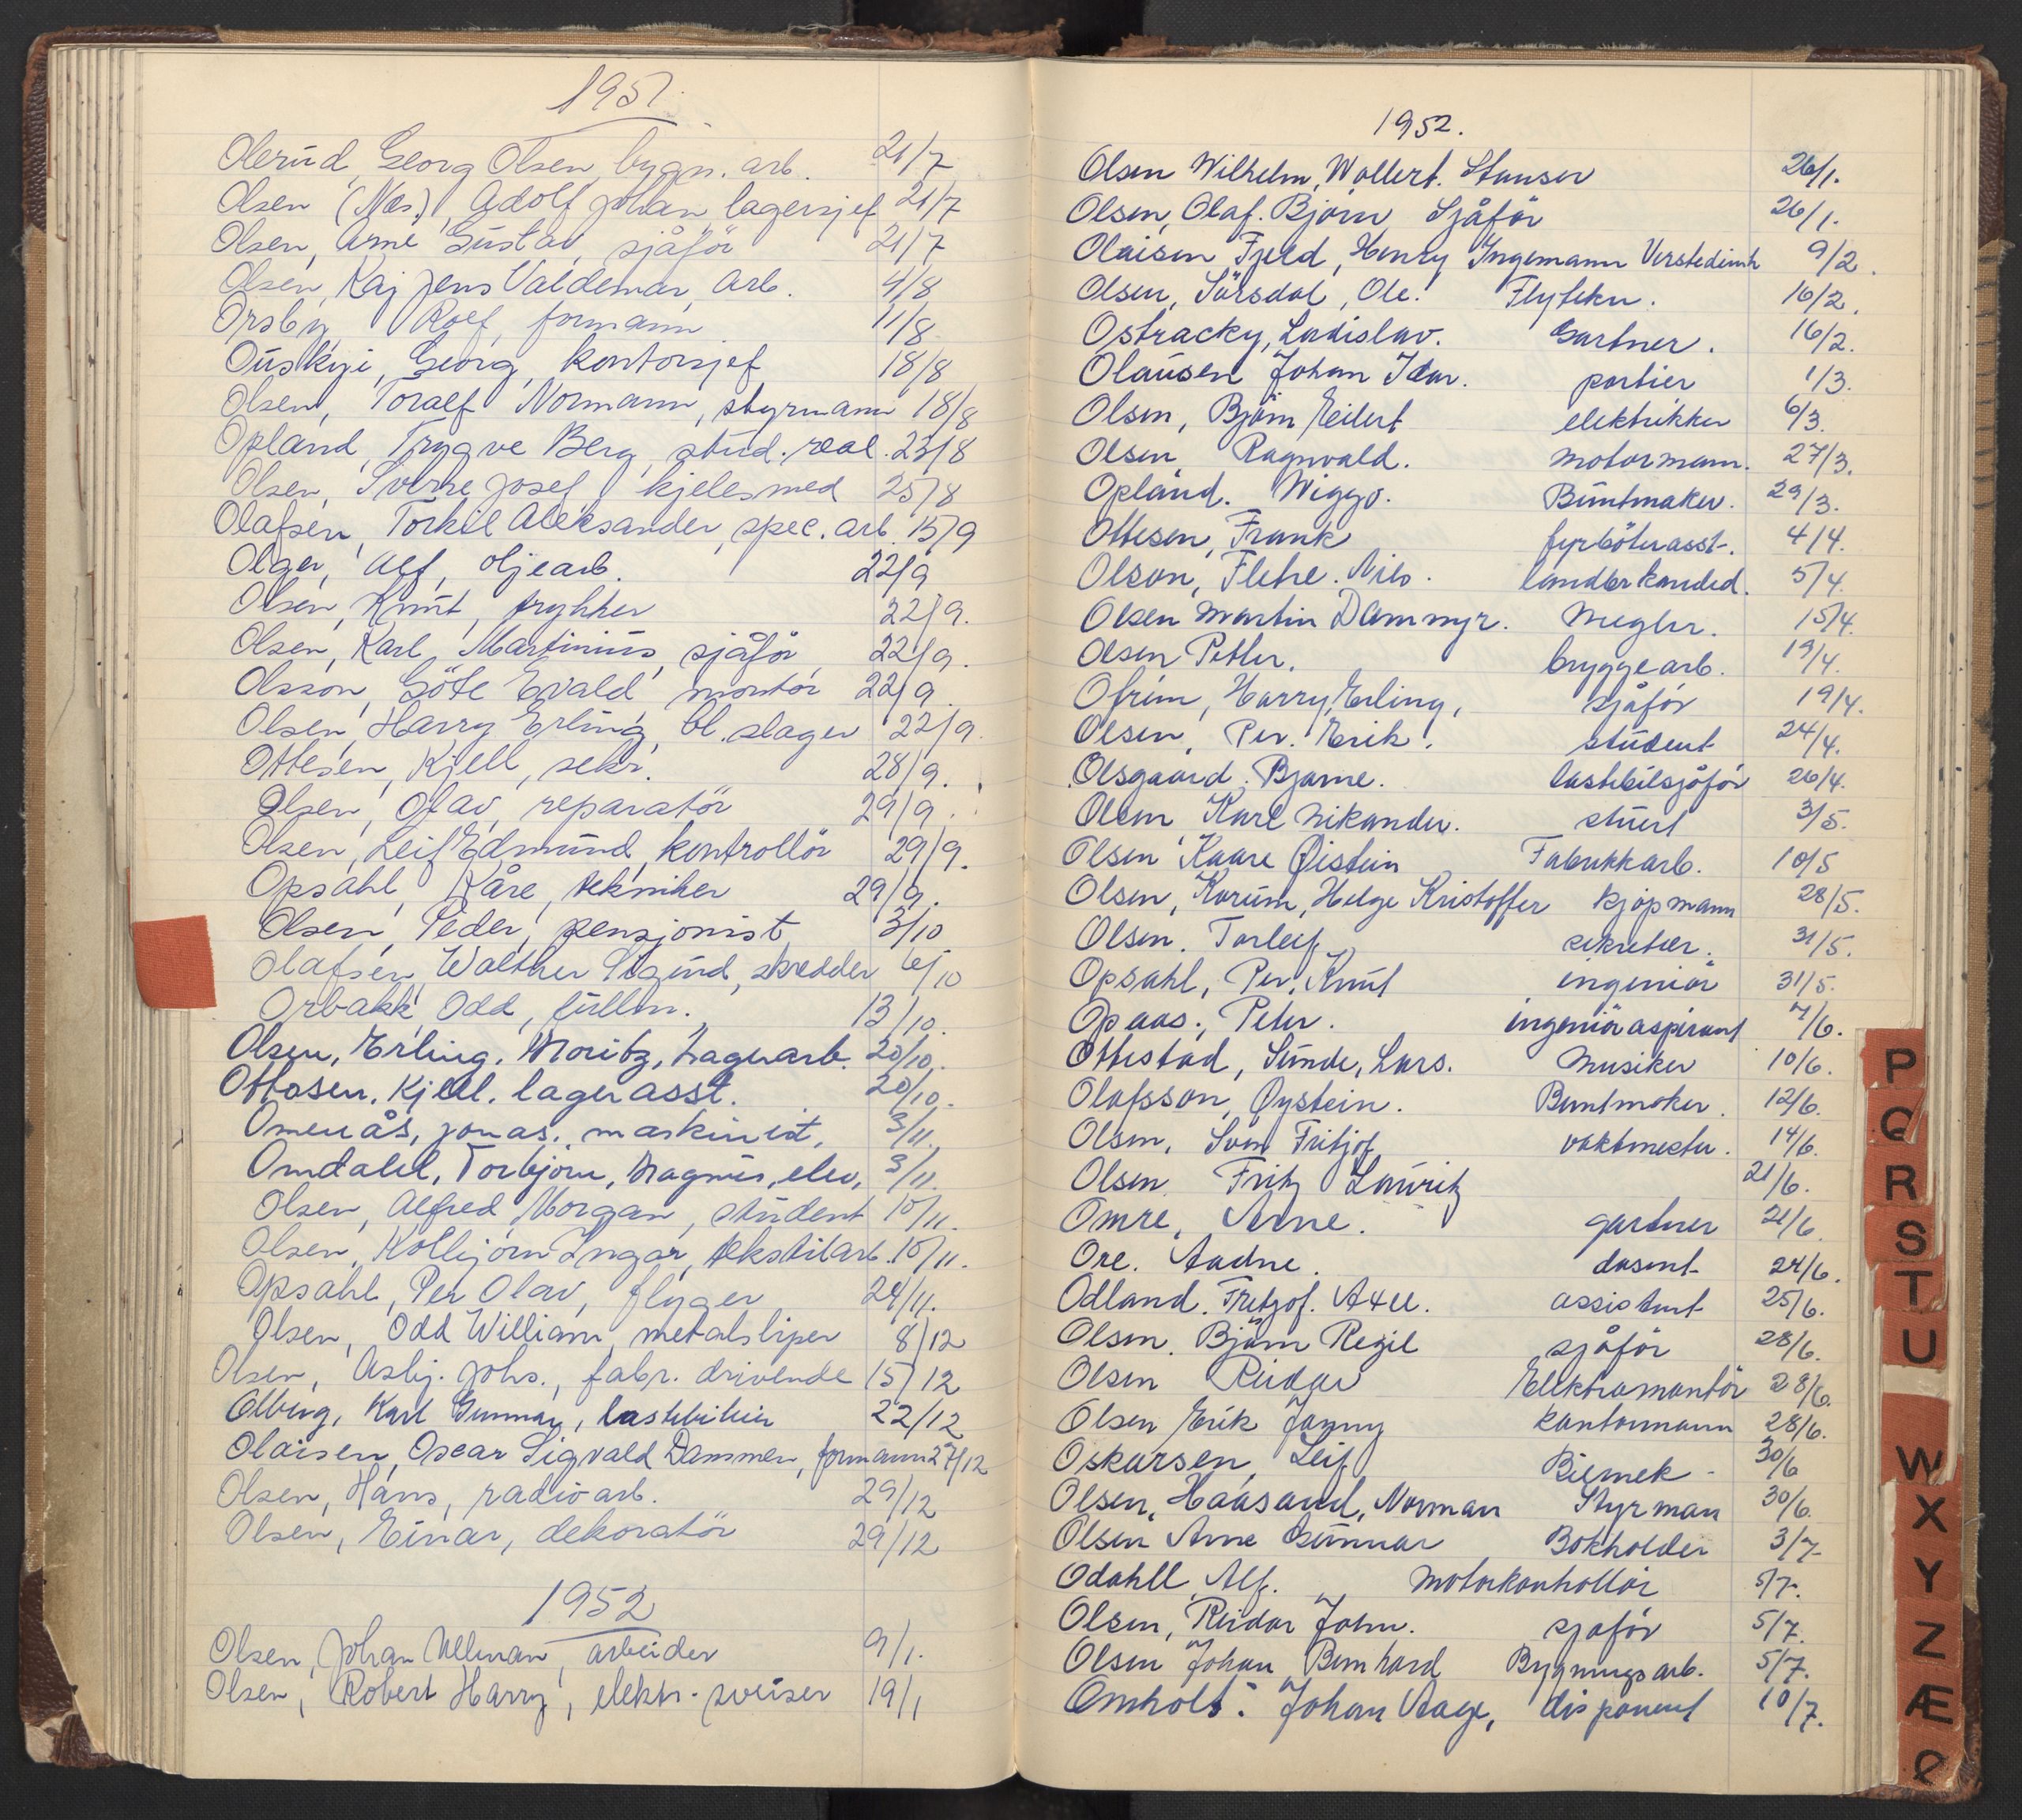 1951.
Olerud, Georg Olsen, bygn. arb. 21/7
Olsen (Næs), Adolf Johan lagersjef 21/7
Olsen, Arne Gustav, sjåför 21/7
Olsen, Kaj Jens Valdemar, arb. 4/8
Orsby, Rolf, formann 11/8
Ouskyi, Georg, kontorsjef 18/8
Olsen, Toralf Normann, styrmann 18/8
Opland, Trygve Berg, stud. real. 23/8
Olsen, Sverre Josef, kjelesmed 25/8
Olafsen, Torkil Aleksander, spec. arb. 15/9
Olger, Alf, oljearb. 22/9
Olsen, Knut, trykker 22/9.
Olsen, Karl Martinius, sjåför, 22/9.
Olsson, Göte Evald, montör 22/9.
Olsen, Harry Erling, bl. slager 22/9.
Ottesen, Kjell, sekr. 28/9.
Olsen, Olav, reparatör 29/9.
Olsen, Leif Edmund, kontrollör 29/9.
Opsahl, Kåre, tekniker 29/9.
Olsen, Peder, pensjonist 3/10
Olafsen, Walther Sigurd, skredder 6/10
Orbakk, Odd, fullm. 13/10.
Olsen, Erling, Moritz, Lagerarb. 20/10.
Ottosen, Kjell, lagerasst. 20/10.
Omenås, Jonas, maskinist, 3/11.
Omdahl, Torbjörn, Magnus, elev, 3/11.
Olsen, Alfred Morgan, student 10/11.
Olsen, Kolbjörn Ingar, tekstilarb. 10/11.
Opsahl, Per Olav, flyger 24/11.
Olsen, Odd William, metalsliper 8/12
Olsen, Asbj. Johs., fabr. drivende 15/12
Olberg, Karl Gunnar, 22/12
Olaisen, Oscar Sigvald Dammen, formann 27/12
Olsen, Hans, radioarb. 29/12
Olsen, Einar, dekoratör 29/12
1952
Olsen, Johan Ullman, arbeider 9/1.
Olsen, Robert Harry, elektr. sveiser 19/1
1952.
Olsen Wilhelm, Wollert. Stanser 26/1.
Olsen, Olaf. Bjørn Sjåför 26/1.
Olaisen Fjeld, Henry Ingemann 9/2.
Olsen, Sörsdal, Ole. Flytekn. 16/2.
Ostracky, Ladislav. Gartner. 16/2.
Olausen Johan Idar. portier 1/3.
Olsen, Björn Eilert elektrikker 6/3.
Olsen, Ragnvald. motormann. 27/3.
Opland. Wiggo. Buntmaker. 29/3.
Ottesen, Frank fyrböterasst. 4/4.
Olson, Nils. 5/4.
Olsen Martin Dammyr. Megler. 15/4.
Olsen Petter. bryggearb. 19/4.
Ofrim, Harry, Erling, sjåför 19/4.
Olsen, Per. Erik. student 24/4.
Olsgaard. Bjarne. lastebilsjåför 26/4.
Olsen Karl Nikander. stuert 3/5.
Olsen Kaare Øistein Fabrikkarb. 10/5
Olsen, Korum, Helge Kristoffer kjöpmann 28/5.
Olsen. Torleif sekretær. 31/5.
Opsahl, Per, Knut ingeniör 31/5.
Opaas., Peter. ingeniöraspirant 7/6.
Ottestad, Sunde, Lars. Musiker 10/6.
Olafsson, Øystein. Buntmaker. 12/6.
Olsen, Sven Fritjof vaktmester. 14/6.
Olsen Fritz Lauritz 21/6.
Omre, Arne. gartner 21/6.
Ore. Aadne. dosent 24/6.
Odland. Fritjof. Axel. assistent 25/6.
Olsen. Björn Regil sjåför 28/6.
Olsen Reidar Elektromontör 28/6.
Olsen Erik Jonny kontormann 28/6.
Oskarsen, Leif Bilmek. 30/6
Olsen, Haasand, Norman Styrman 30/6.
Olsen Arne Gunnar Bokholder 3/7
Odahll, Alf. Motorkontrollör 5/7.
Olsen, Reidar John. sjåför 5/7.
Olsen Johan Bernhard Bygningsarb. 5/7.
Omholt. Johan Aage, disponent 10/7.
P
Q
R
S
T
U
W
X
Y
Z
Æ
Ø